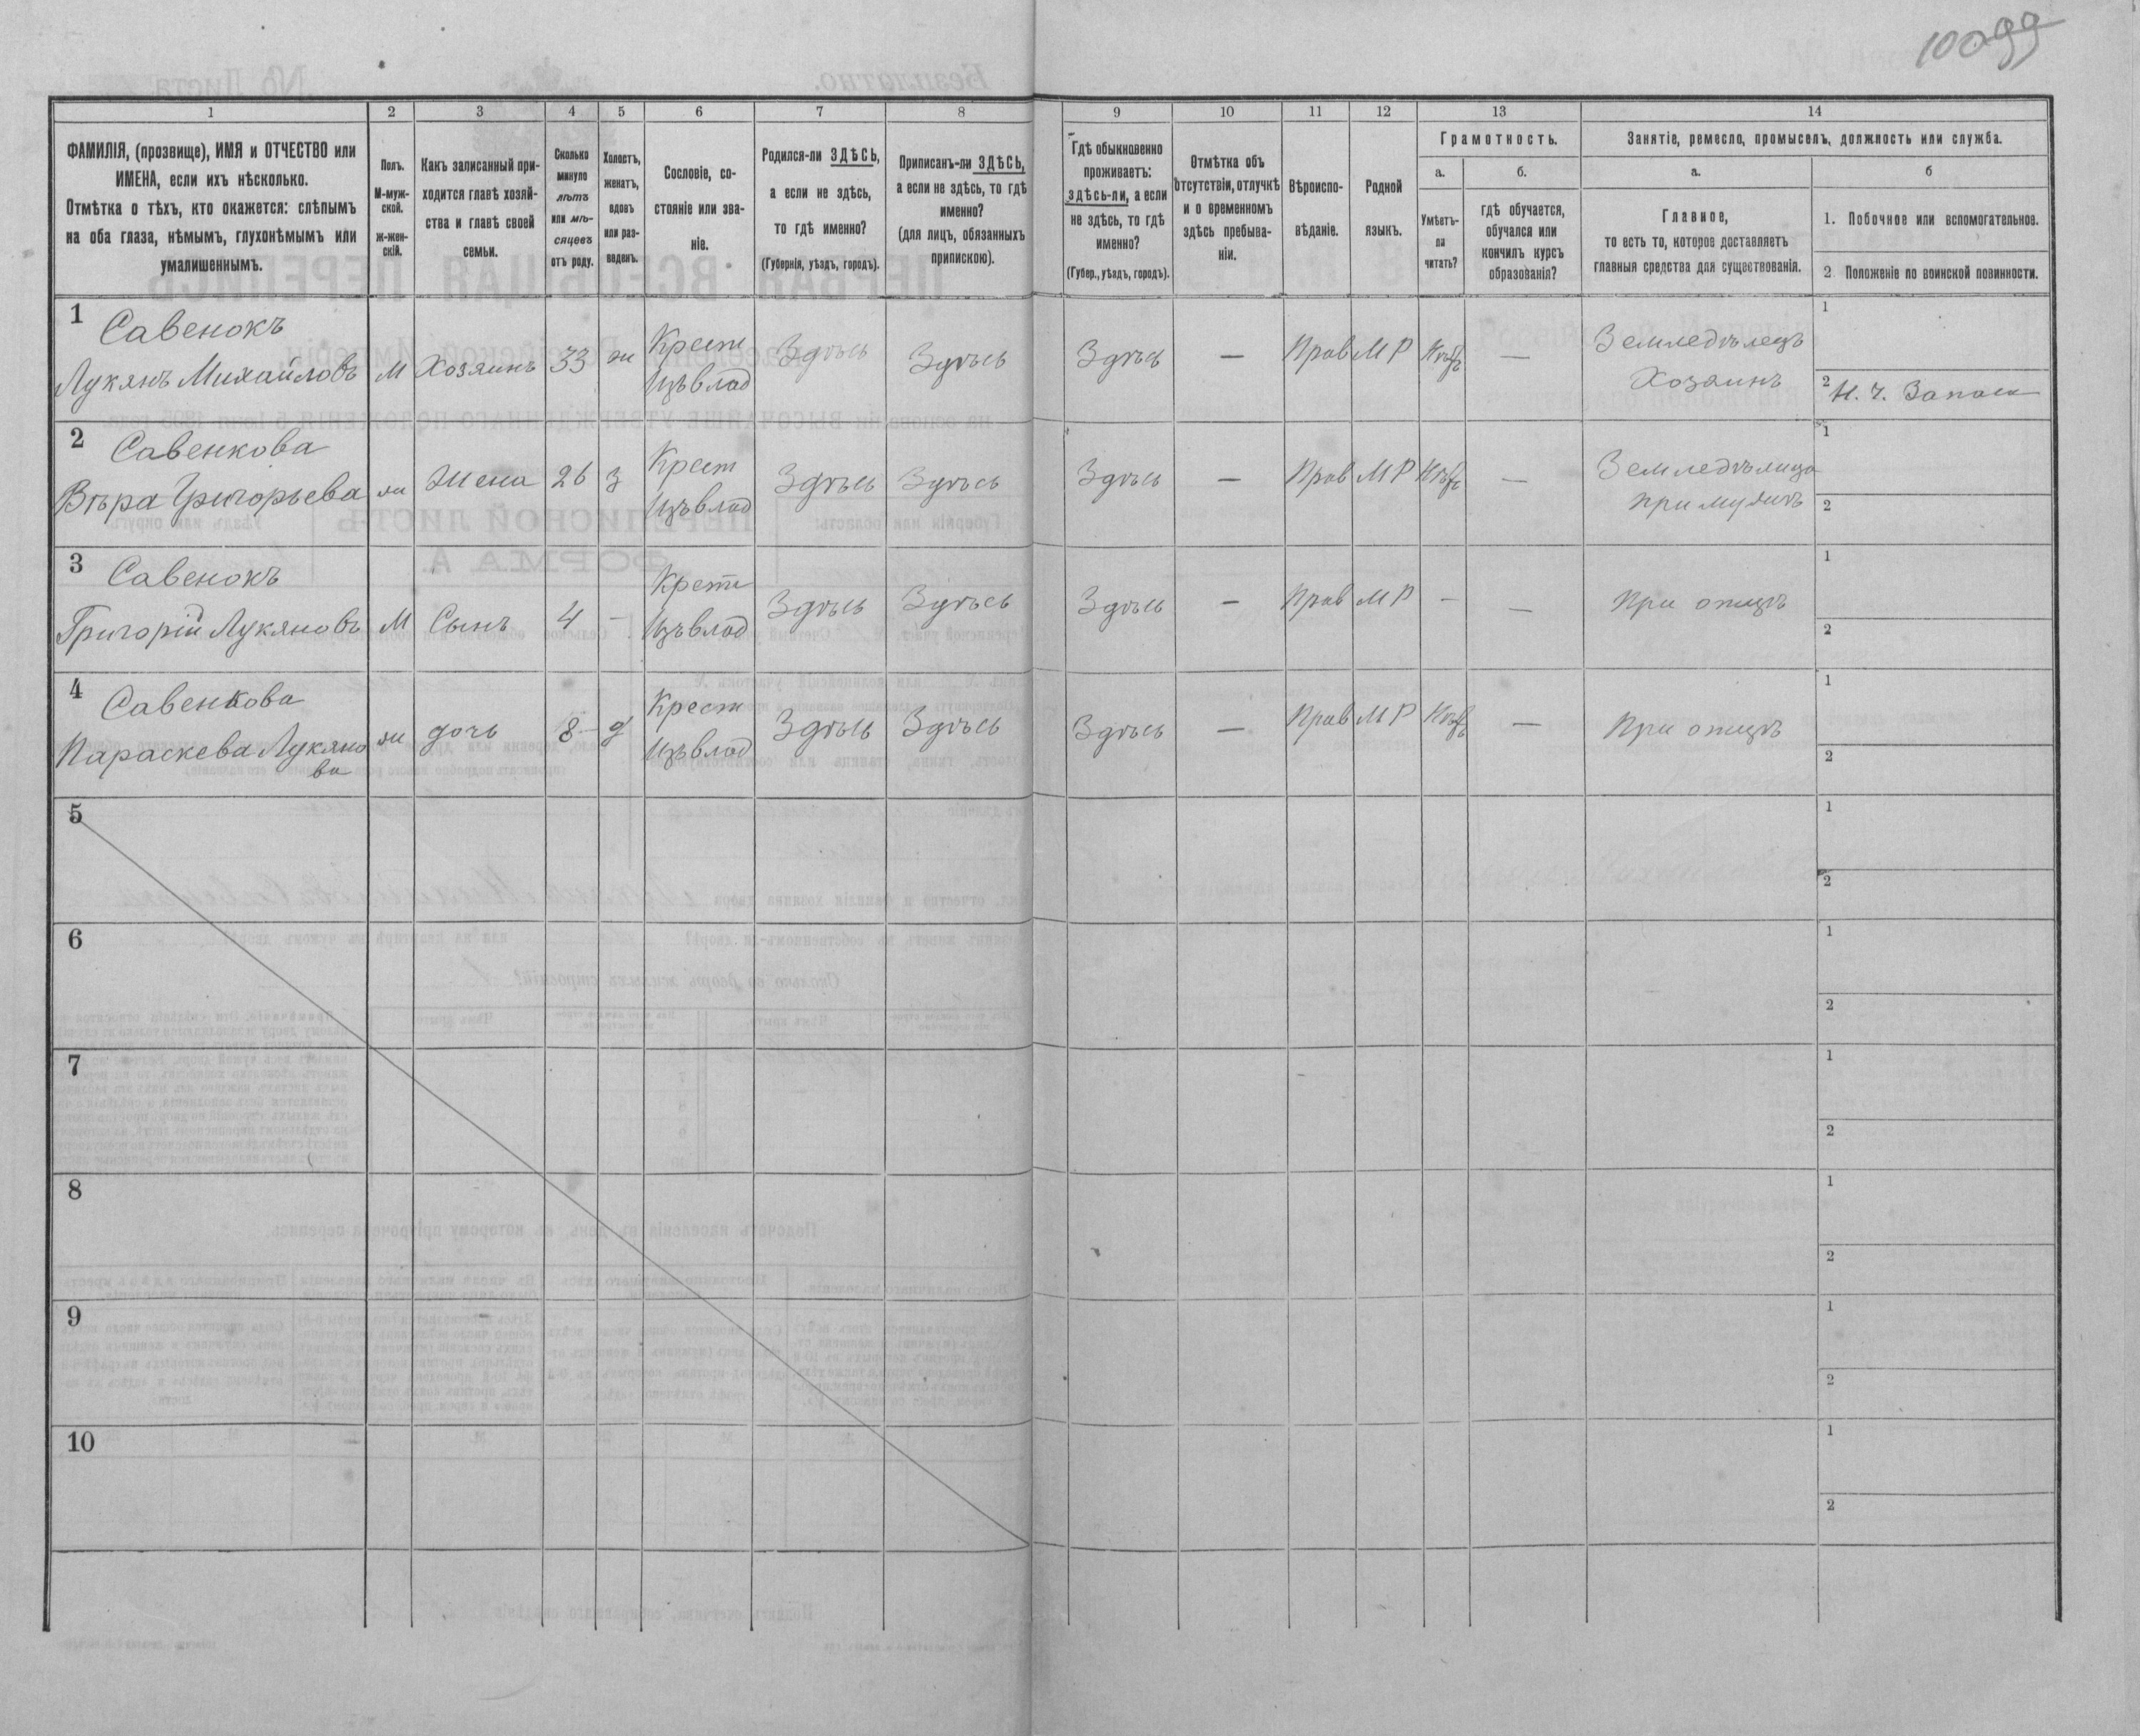 10099
1 2 3 4 5 6 7 8 9 10 11 12 13 14
ФАМИЛІЯ, (прозвище), ИМЯ и ОТЧЕСТВО или
ИМЕНА, если ихъ нѣсколько.
Отмѣтка о тѣхъ, кто окажется: слѣпымъ
на оба глаза, нѣмымъ, глухонѣмымъ или
умалишеннымъ.
Полъ.
М-муж-
ской.
ж-жен-
скій.
Какъ записанный при-
ходится главѣ хозяй-
ства и главѣ своей
семьи.
Сколько
минуло
лѣтъ
или мѣ-
сяцевъ
отъ роду.
Холостъ,
женатъ,
вдовъ
или раз-
веденъ.
Сословіе, со-
стояніе или зва-
ніе.
Родился-ли ЗДѢСЬ,
а если не здѣсь,
то гдѣ именно?
(Губернія, уѣздъ, городъ).
Приписанъ-ли ЗДѢСЬ,
а если не здѣсь, то гдѣ
именно?
(для лицъ, обязанныхъ
припискою).
Гдѣ обыкновенно
проживаетъ:
здѣсь-ли, а если
не здѣсь, то гдѣ
именно?
(Губер., уѣздъ, городъ).
Отмѣтка объ
отсутствіи, отлучкѣ
и о временномъ
здѣсь пребыва-
ніи.
Вѣроиспо-
вѣданіе.
Родной
языкъ.
Грамотность.
а.
Умѣетъ-
ли
читать?
б.
гдѣ обучается,
обучался или
кончилъ курсъ
образованія?
Занятіе, ремесло, промыселъ, должность или служба.
а.
Главное,
то есть то, которое доставляетъ
главныя средства для существованія.
б
1. Побочное или вспомогательное.
2 Положеніе по воинской повинности.
1 Савенокъ
Лукянъ Михайловъ М Хозяинъ 33 ж Крест
изъ влад Здѣсь Здѣсь Здѣсь — Прав МР Нѣтъ — Земледѣлецъ
Хозяинъ
1
2 Н. ч. Запаса
2 Савенкова
Вѣра Григорьева ж Жена 26 з Крест
изъ влад Здѣсь Здѣсь Здѣсь — Прав МР Нѣтъ — Земледѣлица
при мужѣ
1
2
3 Савенокъ
Григорій Лукяновъ М Сынъ 4 — Крест
изъ влад Здѣсь Здѣсь Здѣсь — Прав МР — — При отцѣ
1
2
4 Савенкова
Параскева Лукяно
ва ж дочь 8 д Крест
изъ влад Здѣсь Здѣсь Здѣсь — Прав МР Нѣтъ — При отцѣ
1
2
5
1
2
6
1
2
7
1
2
8
1
2
9
1
2
10
1
2